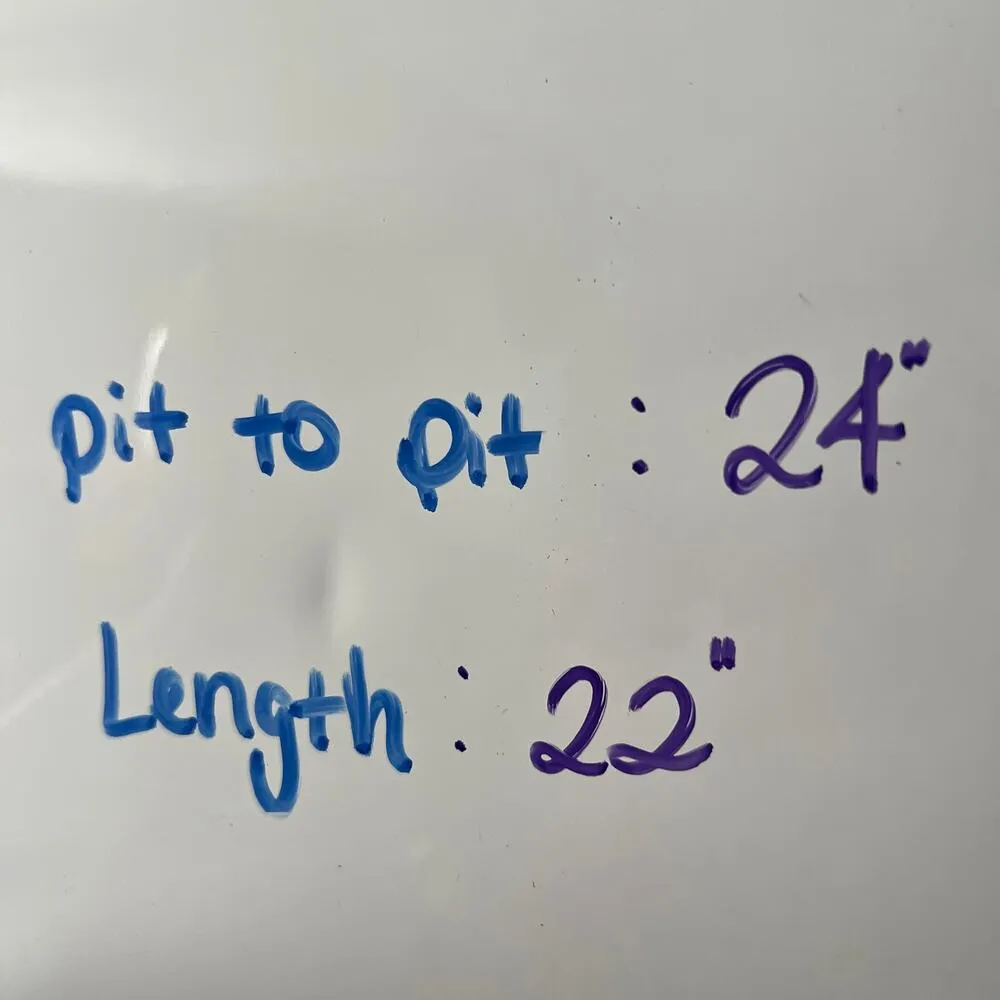 pit to pit : 24"
Length : 22"